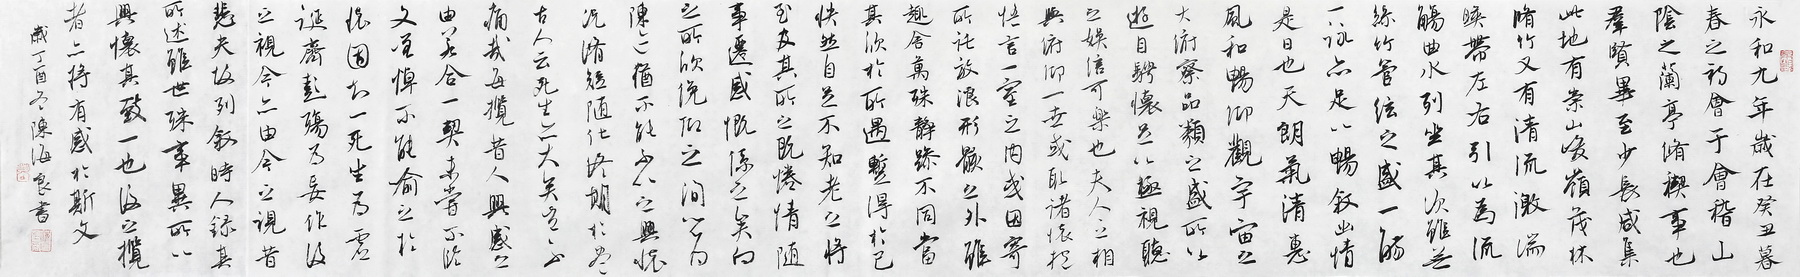 永和九年歲在癸丑暮
春之初會于會稽山
陰之蘭亭脩禊事也
羣賢畢至少長咸集
此地有崇山峻嶺茂林
脩竹又有清流激湍
暎帶左右引以為流
觴曲水列坐其次雖無
絲竹管弦之盛一觴
一詠亦足以暢敘幽情
是日也天朗氣清惠
風和暢仰觀宇宙之
大俯察品類之盛所以
遊目騁懷足以極視聽
之娛信可樂也夫人之相
與俯仰一世或取諸懷抱
悟言一室之內或因寄
所託放浪形骸之外雖
趣舍萬殊靜躁不同當
其欣於所遇暫得於己
快然自足不知老之將
至及其所之既惓情隨
事遷感慨係之矣向
之所欣俛仰之間以為
陳迹猶不能不以之興懷
況脩短隨化終期於盡
古人云死生亦大矣豈不
痛哉每攬昔人興感之
由若合一契未嘗不臨
文嗟悼不能喻之於
懷固知一死生為虛
誕齊彭殤為妄作後
之視今亦由今之視昔
悲夫故列敘時人錄其
所述雖世殊事異所以
興懷其致一也後之攬
者亦將有感於斯文
歲丁酉冬陳海良書